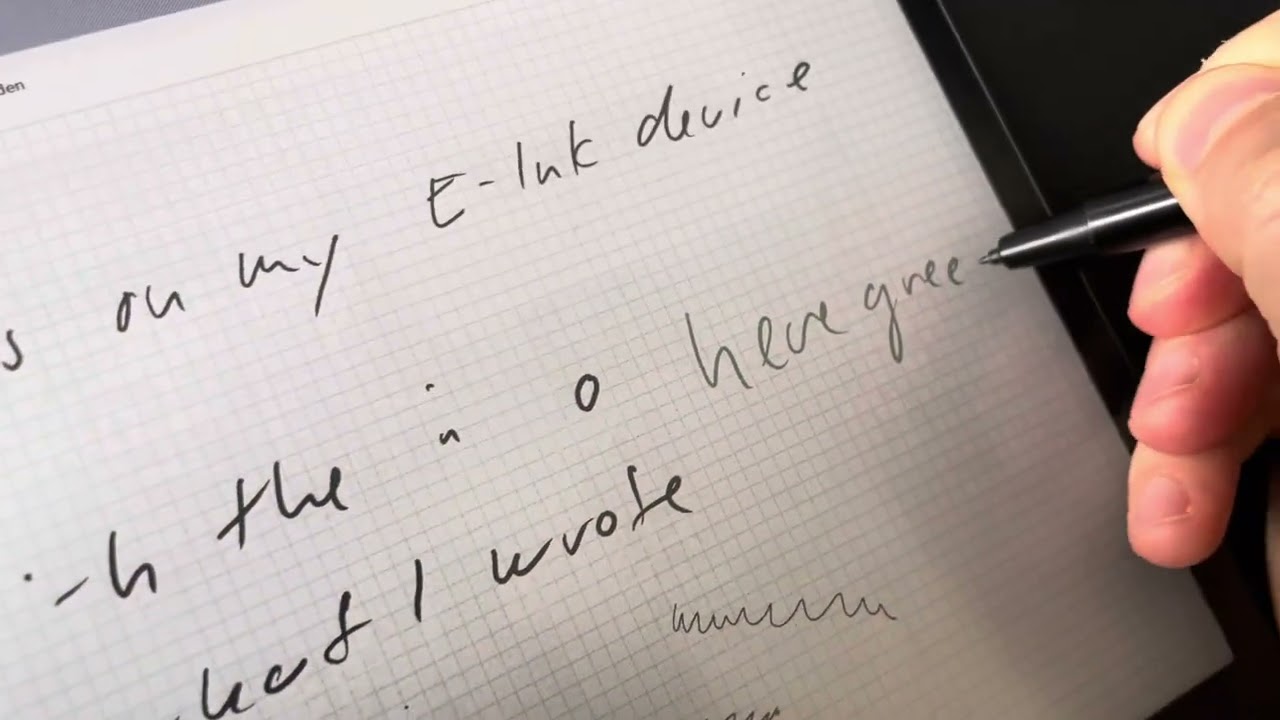 den
s on my E-Ink device
the in o here gree
hat I wrote